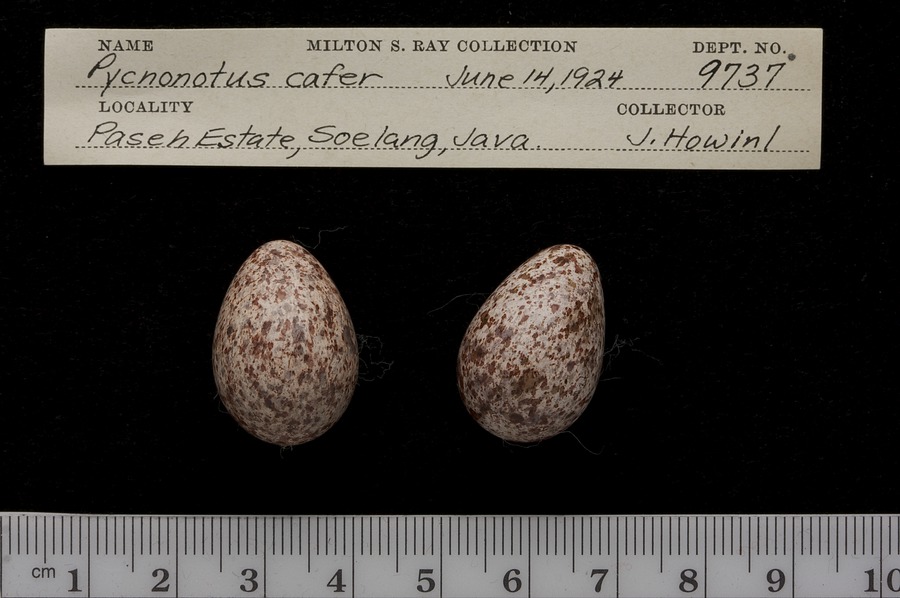 NAME MILTON S. RAY COLLECTION DEPT. NO.
Pycnonotus cafer June 14, 1924 9737
LOCALITY COLLECTOR
Paseh Estate, Soelang, Java. J. Howinl
cm 1 2 3 4 5 6 7 8 9 10